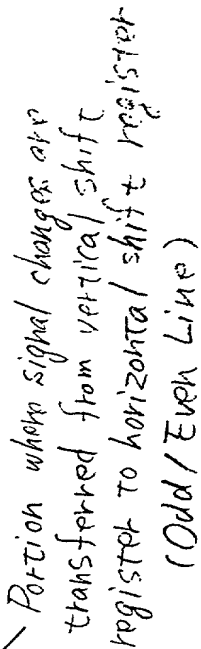 Portion where signal changes are
transferred from vertical shift
register to horizontal shift register
(Odd/Even Line)